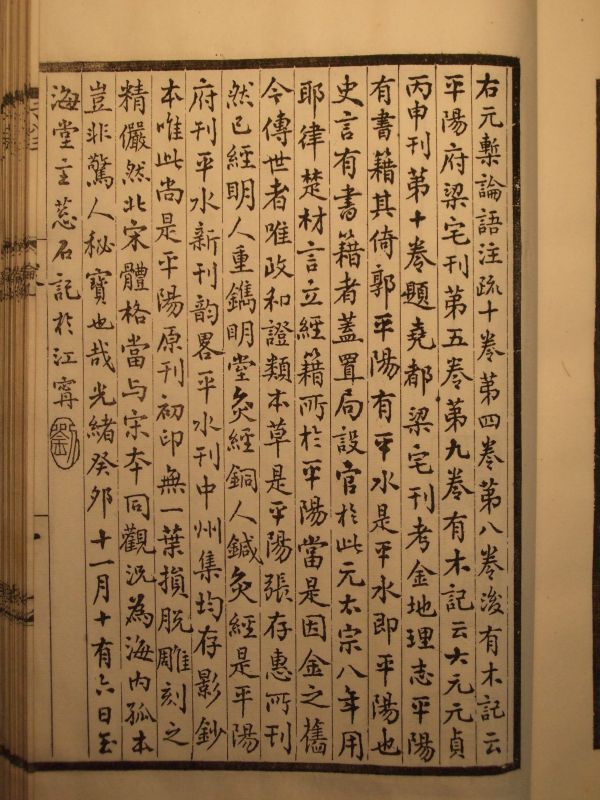 右元槧論語注疏十卷第四卷第八卷後有木記云
平陽府梁宅刊第五卷第九卷有木記云大元元貞
丙申刊第十卷題堯都梁宅刊考金地理志平陽
有書籍其倚郭平陽有平水是平水即平陽也
史言有書籍者蓋置局設官於此元太宗八年用
耶律楚材言立經籍所於平陽當是因金之舊
今傳世者唯政和證類本草是平陽張存惠所刊
然已經明人重鐫明堂灸經銅人鍼灸經是平陽
府刊平水新刊韵畧平水刊中州集均存影鈔
本唯此尚是平陽原刊初印無一葉損脫雕刻之
精儼然北宋體格當与宋本同觀況為海內孤本
豈非驚人秘寶也哉光緒癸卯十一月十有六日玉
海堂主蔥石記於江寧
劉